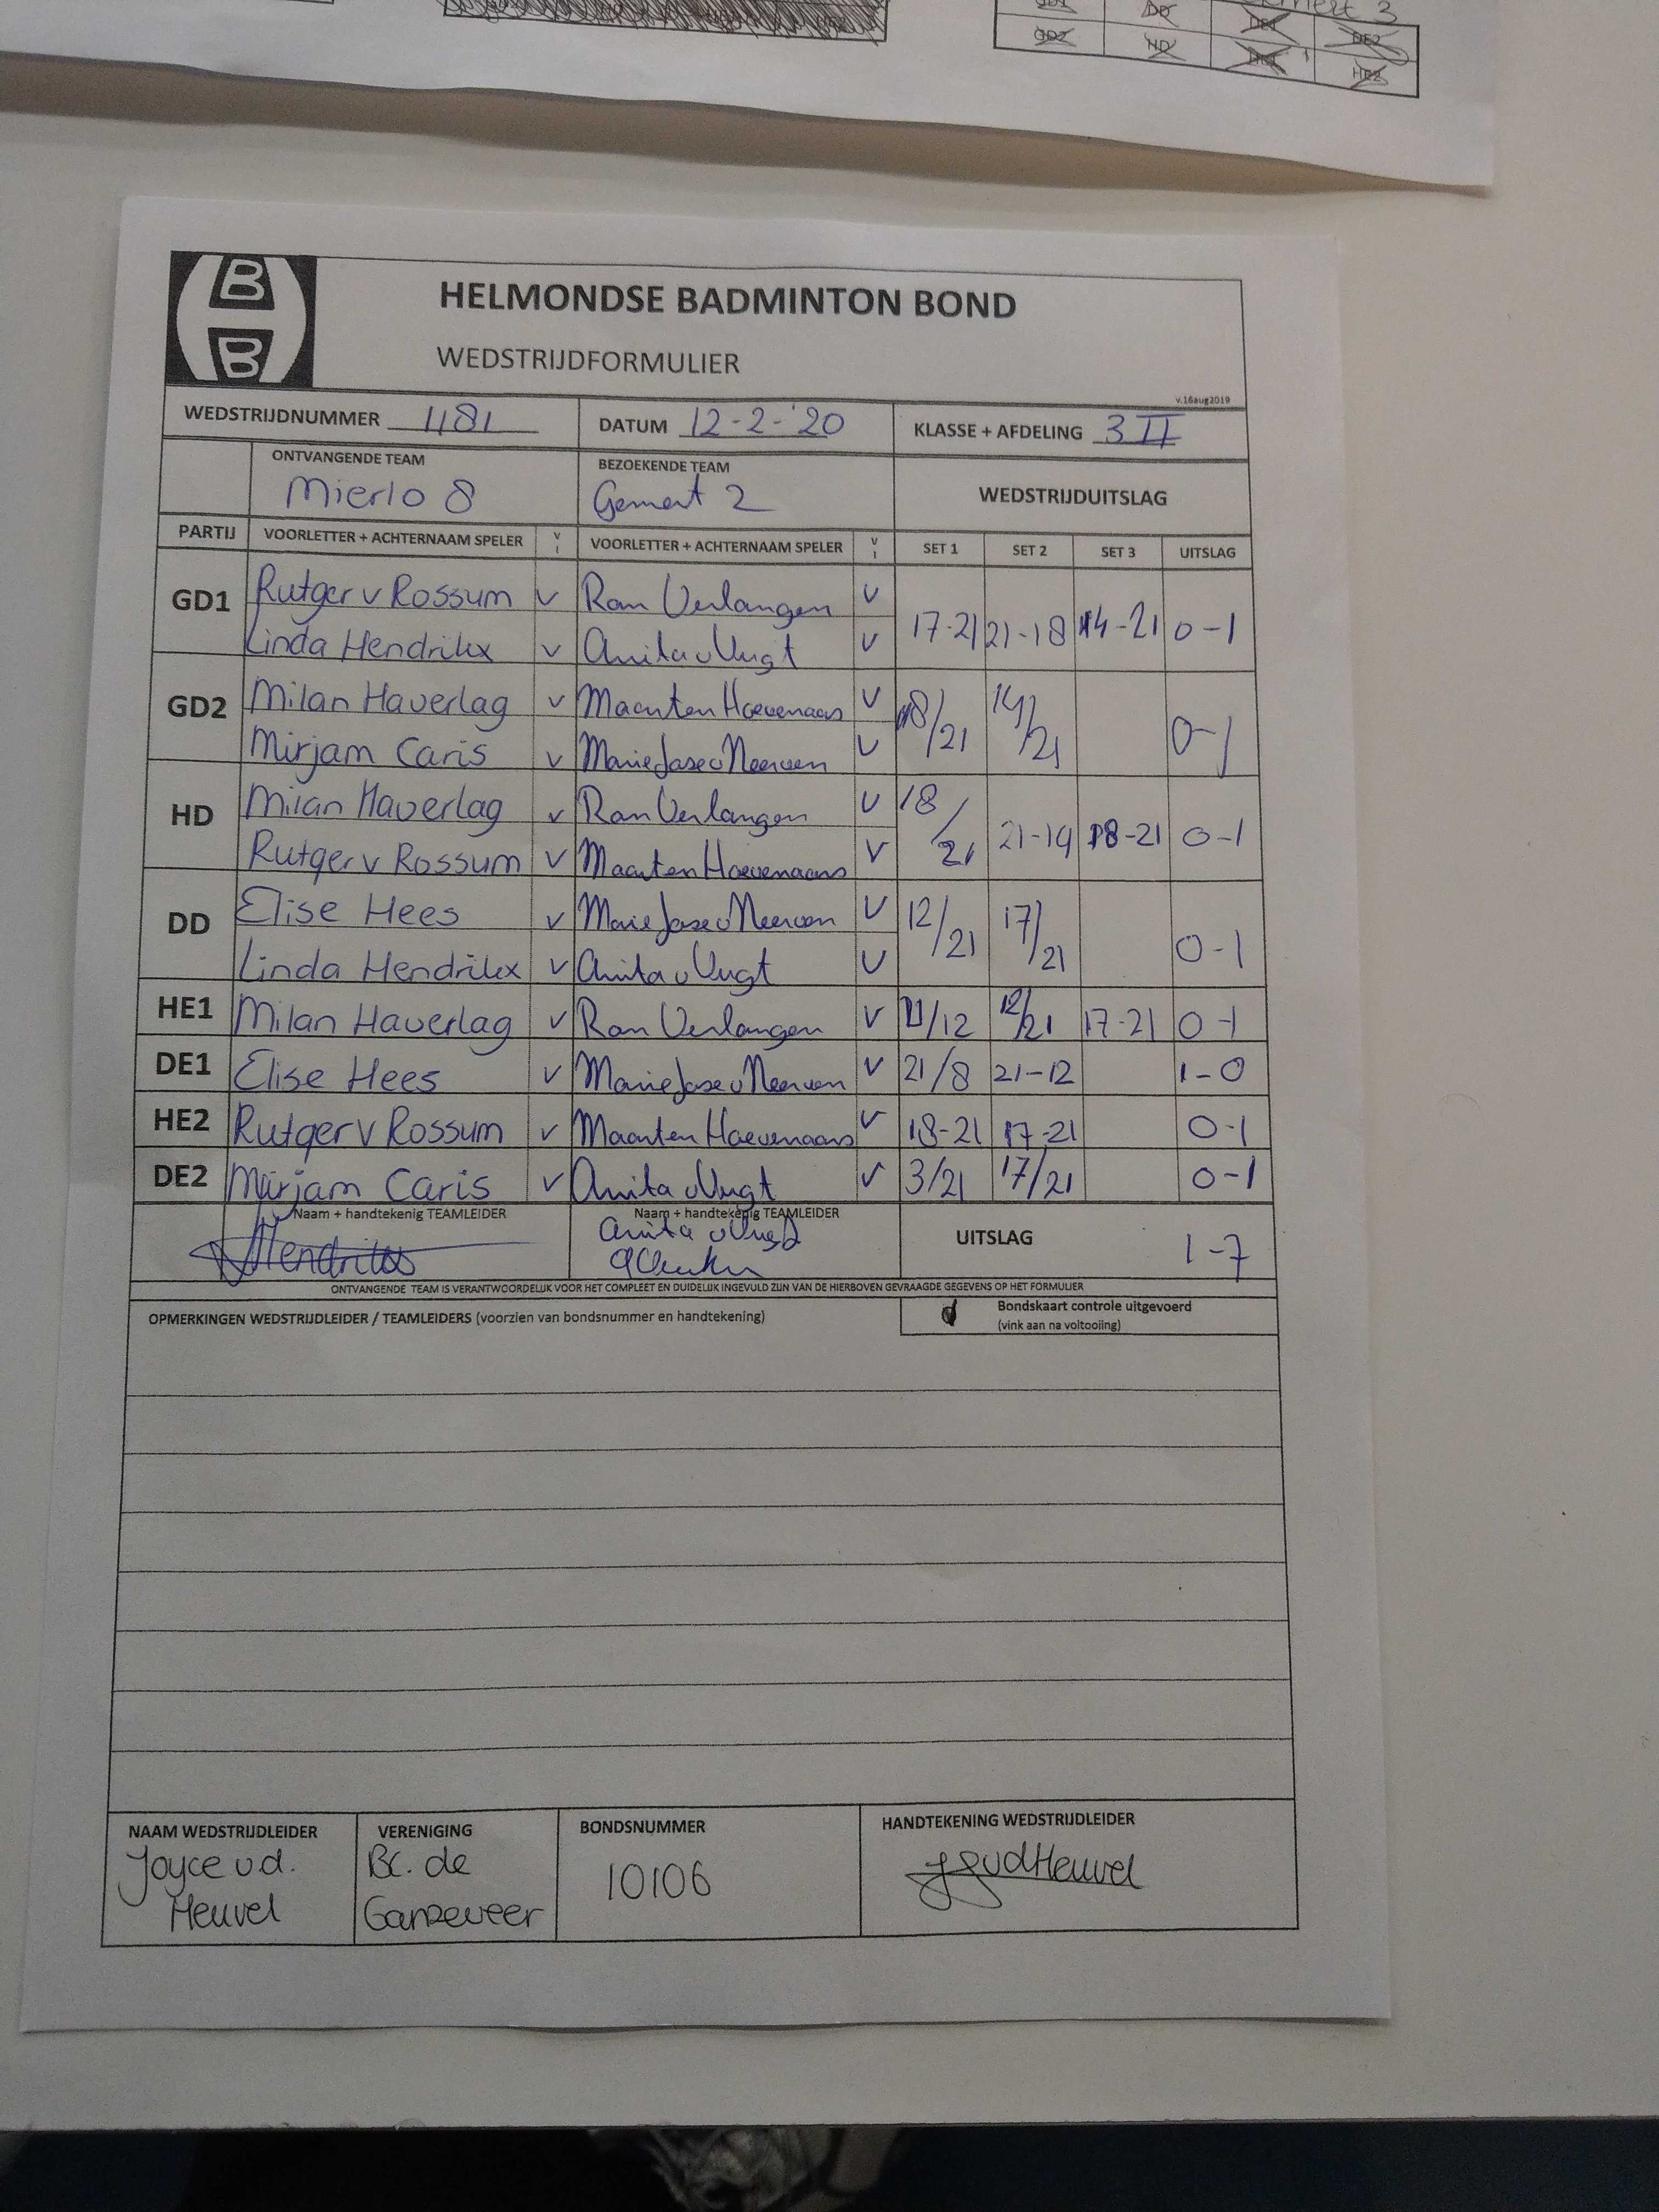 3
GD2 HD HE2
DE2
B
B
HELMONDSE BADMINTON BOND
WEDSTRIJDFORMULIER
v.16aug2019
WEDSTRIJDNUMMER 1181 DATUM 12-2-'20 KLASSE + AFDELING 3 II
ONTVANGENDE TEAM BEZOEKENDE TEAM WEDSTRIJDUITSLAG
Mierlo 8 Gemert 2
PARTIJ VOORLETTER + ACHTERNAAM SPELER V I VOORLETTER + ACHTERNAAM SPELER V I SET 1 SET 2 SET 3 UITSLAG
GD1 Rutger v Rossum v Ron Verlangen v 17-21 21-18 14-21 0-1
Linda Hendrikx v Anita v Vugt v
GD2 Milan Haverlag v Maarten Hoevenaars v 18/21 14/21 0-1
Mirjam Caris v Marie Jose v Neerven v
HD Milan Haverlag v Ron Verlangen v 18/21 21-19 18-21 0-1
Rutger v Rossum v Maarten Hoevenaars v
DD Elise Hees v Marie Jose v Neerven v 12/21 17/21 0-1
Linda Hendrikx v Anita v Vugt v
HE1 Milan Haverlag v Ron Verlangen v 21/12 12/21 17-21 0-1
DE1 Elise Hees v Marie Jose v Neerven v 21/8 21-12 1-0
HE2 Rutger v Rossum v Maarten Hoevenaars v 18-21 17-21 0-1
DE2 Mirjam Caris v Anita v Vugt v 3/21 17/21 0-1
Naam + handtekenig TEAMLEIDER Naam + handtekenig TEAMLEIDER UITSLAG 1-7
Hendrikx Anita v Vugt
ONTVANGENDE TEAM IS VERANTWOORDELIJK VOOR HET COMPLEET EN DUIDELIJK INGEVULD ZIJN VAN DE HIERBOVEN GEVRAAGDE GEGEVENS OP HET FORMULIER
OPMERKINGEN WEDSTRIJDLEIDER / TEAMLEIDERS (voorzien van bondsnummer en handtekening) Bondskaart controle uitgevoerd
(vink aan na voltooiing)
NAAM WEDSTRIJDLEIDER VERENIGING BONDSNUMMER HANDTEKENING WEDSTRIJDLEIDER
Joyce v.d. Bc. de 10106 JvdHeuvel
Heuvel Ganzeveer